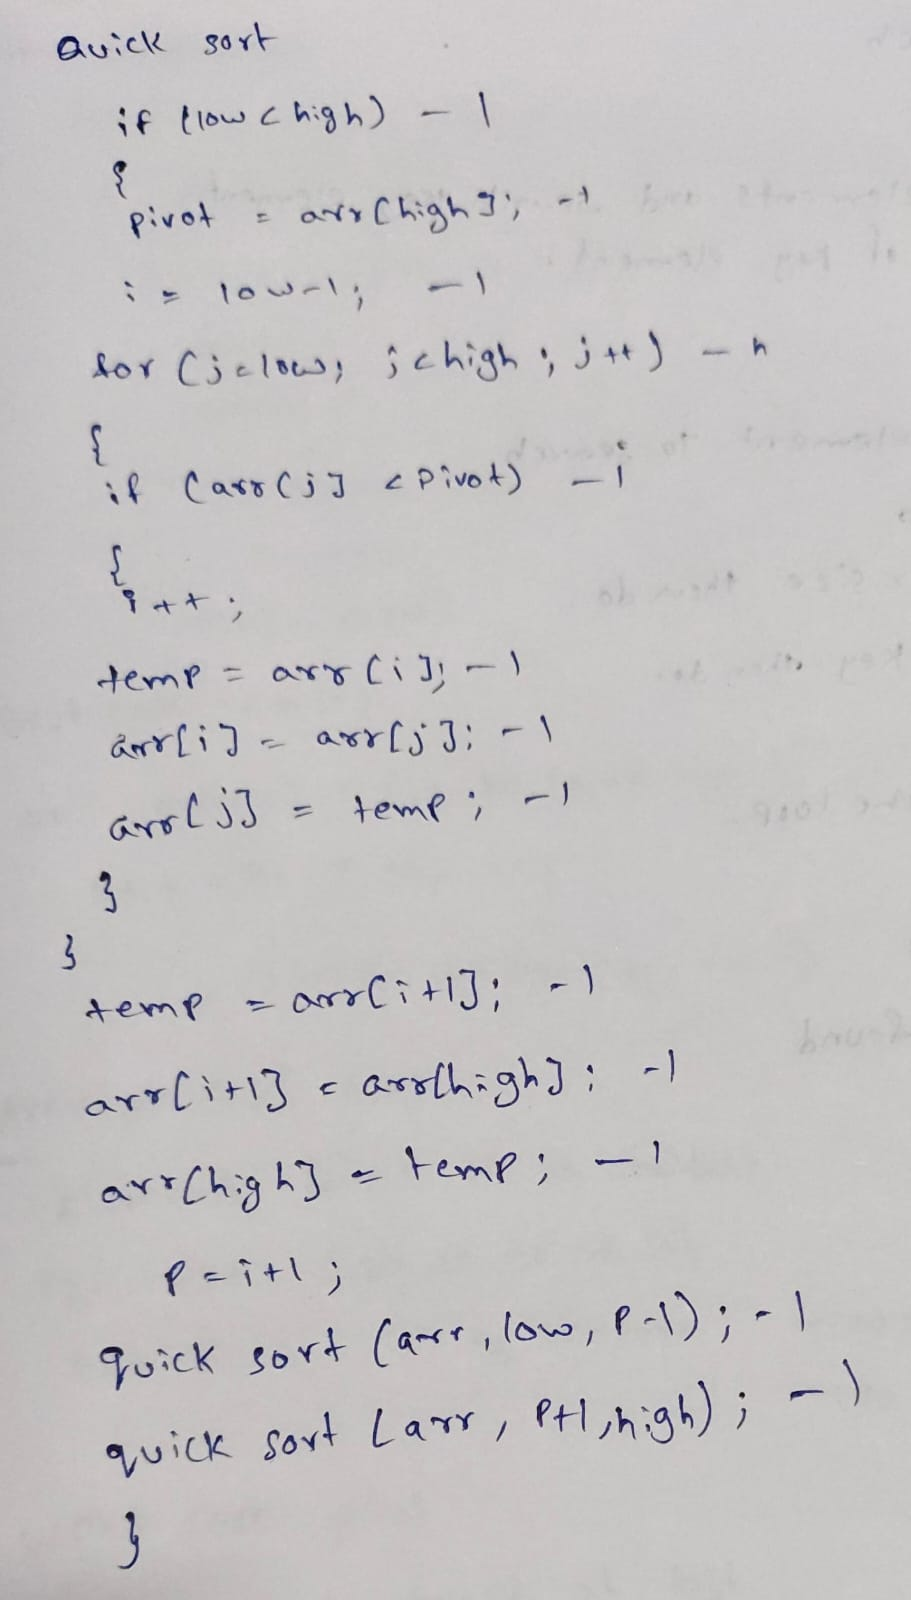 Quick sort
if (low < high) - 1
{
pivot = arr[high]; -1
i = low-1; -1
for (j=low; j<high; j++) - n
{
if (arr[j] < pivot) - 1
{
i++;
temp = arr[i]; - 1
arr[i] = arr[j]; - 1
arr[j] = temp; - 1
}
}
temp = arr[i+1]; - 1
arr[i+1] = arr[high]; -1
arr[high] = temp; - 1
P = i+1;
quick sort (arr, low, P-1); - 1
quick sort (arr, P+1, high); - 1
}